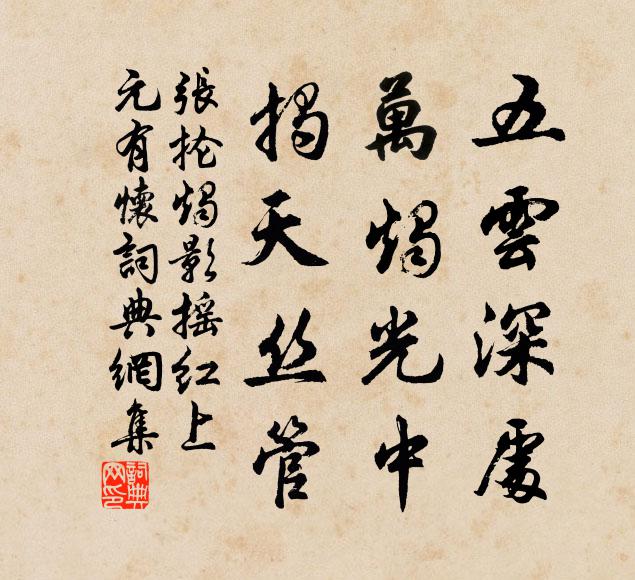 五雲深處
萬燭光中
揭天丝管
張抡燭影摇紅上
元有懷詞典網集
詞典網印